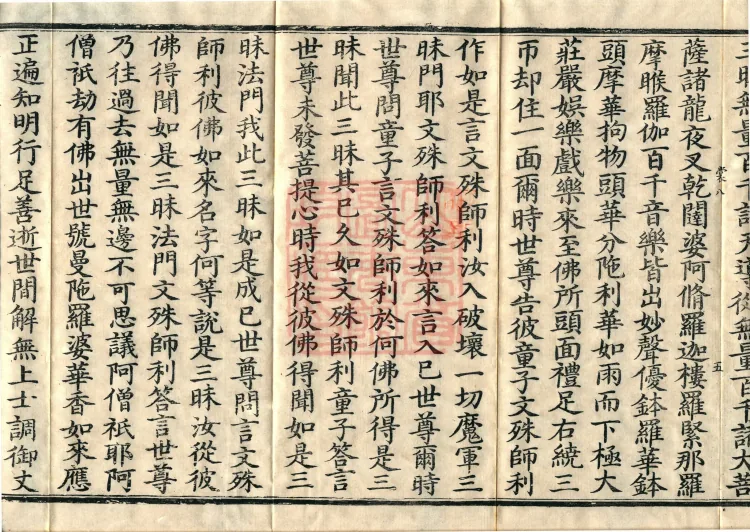 三昧無量百千諸天導從無量百千諸大菩
薩諸龍夜叉乾闥婆阿脩羅迦樓羅緊那羅
摩睺羅伽百千音樂皆出妙聲優鉢羅華鉢
頭摩華拘物頭華分陁利華如雨而下極大
莊嚴娛樂戲樂來至佛所頭面禮足右繞三
帀却住一面爾時世尊告彼童子文殊師利
作如是言文殊師利汝入破壞一切魔軍三
昧門耶文殊師利答如來言入已世尊爾時
世尊問童子言文殊師利於何佛所得是三
昧聞此三昧其已久如文殊師利童子答言
世尊未發菩提心時我從彼佛得聞如是三
昧法門我此三昧如是成已世尊問言文殊
師利彼佛如來名字何等說是三昧汝從彼
佛得聞如是三昧法門文殊師利答言世尊
乃往過去無量無邊不可思議阿僧祇耶阿
僧祇劫有佛出世號曼陁羅婆華香如來應
正遍知明行足善逝世間解無上士調御丈
五